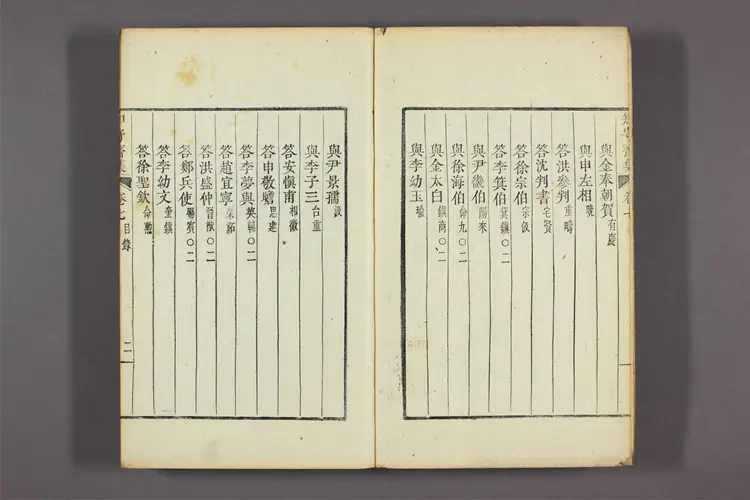 與金奉朝賀有慶
與申左相晩
答洪參判重疇
答沈判書宅賢
答徐宗伯宗伋
答李箕伯箕鎭〇二
與尹徽伯陽來
與徐海伯命九〇二
與金太白鎭商〇二
與李幼玉
與尹景孺汲
與李子三台重
答安愼甫相徽
答申敬瞻思建
答李夢與英輔〇二
答趙宜寧
答洪盛仲晉猷〇二
答鄭兵使暘賓〇二
答李幼文
答徐聖欽命
卷七目錄
二